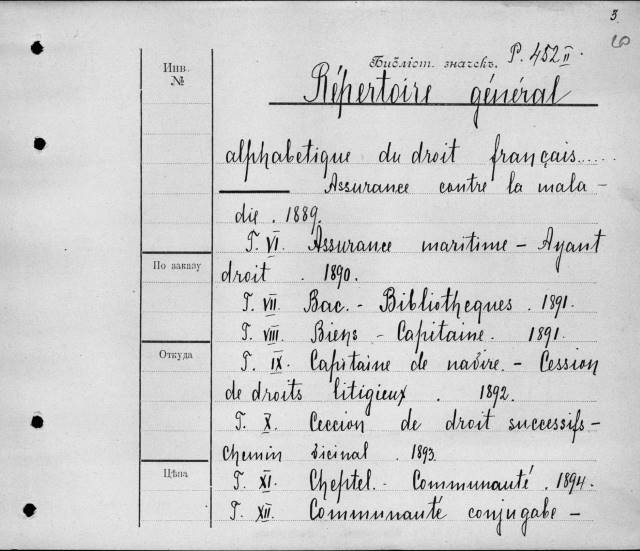 3
6
Библіот. значекъ. P. 452 II.
Инв.
№
Répertoire général
alphabetique du droit français.....
Assurance contre la mala-
die. 1889.
T. VI. Assurance maritime - Ayant
По заказу
droit. 1890.
T. VII. Bac. - Bibliotheques. 1891.
T. VIII. Biens - Capitaine. 1891.
Откуда
T. IX. Capitaine de navire. - Cession
de droits litigieux. 1892.
T. X. Ceccion de droit successifs -
chemin vicinal. 1893
Цѣна
T. XI. Cheptel. - Communauté. 1894.
T. XII. Communauté conjugabe -